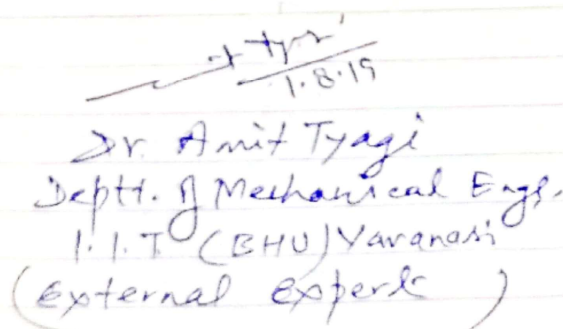 1.8.19
Dr. Amit Tyagi
Deptt. of Mechanical Engg.
I.I.T (BHU) Varanasi
(External Expert)